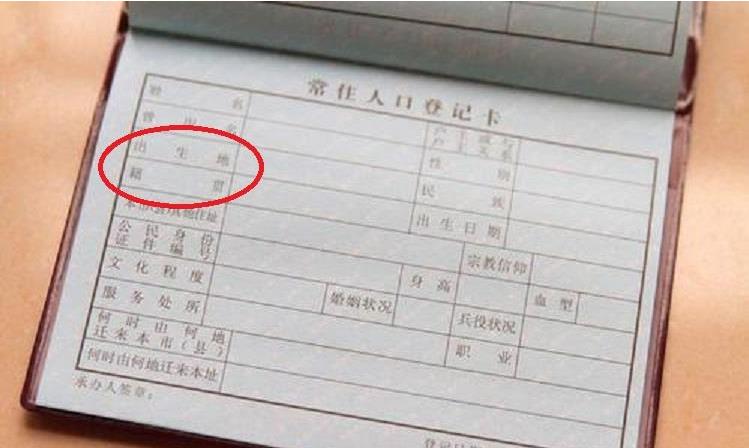 常住人口登记卡
姓 名
曾 用 名 户主或与户主关系
出 生 地 性 别
籍 贯 民 族
本市(县)其他住址 出生日期
公民身份证件编号 宗教信仰
文化程度 身高 血型
服务处所 婚姻状况 兵役状况
何时由何地迁来本市(县) 职 业
何时由何地迁来本址
承办人签章: